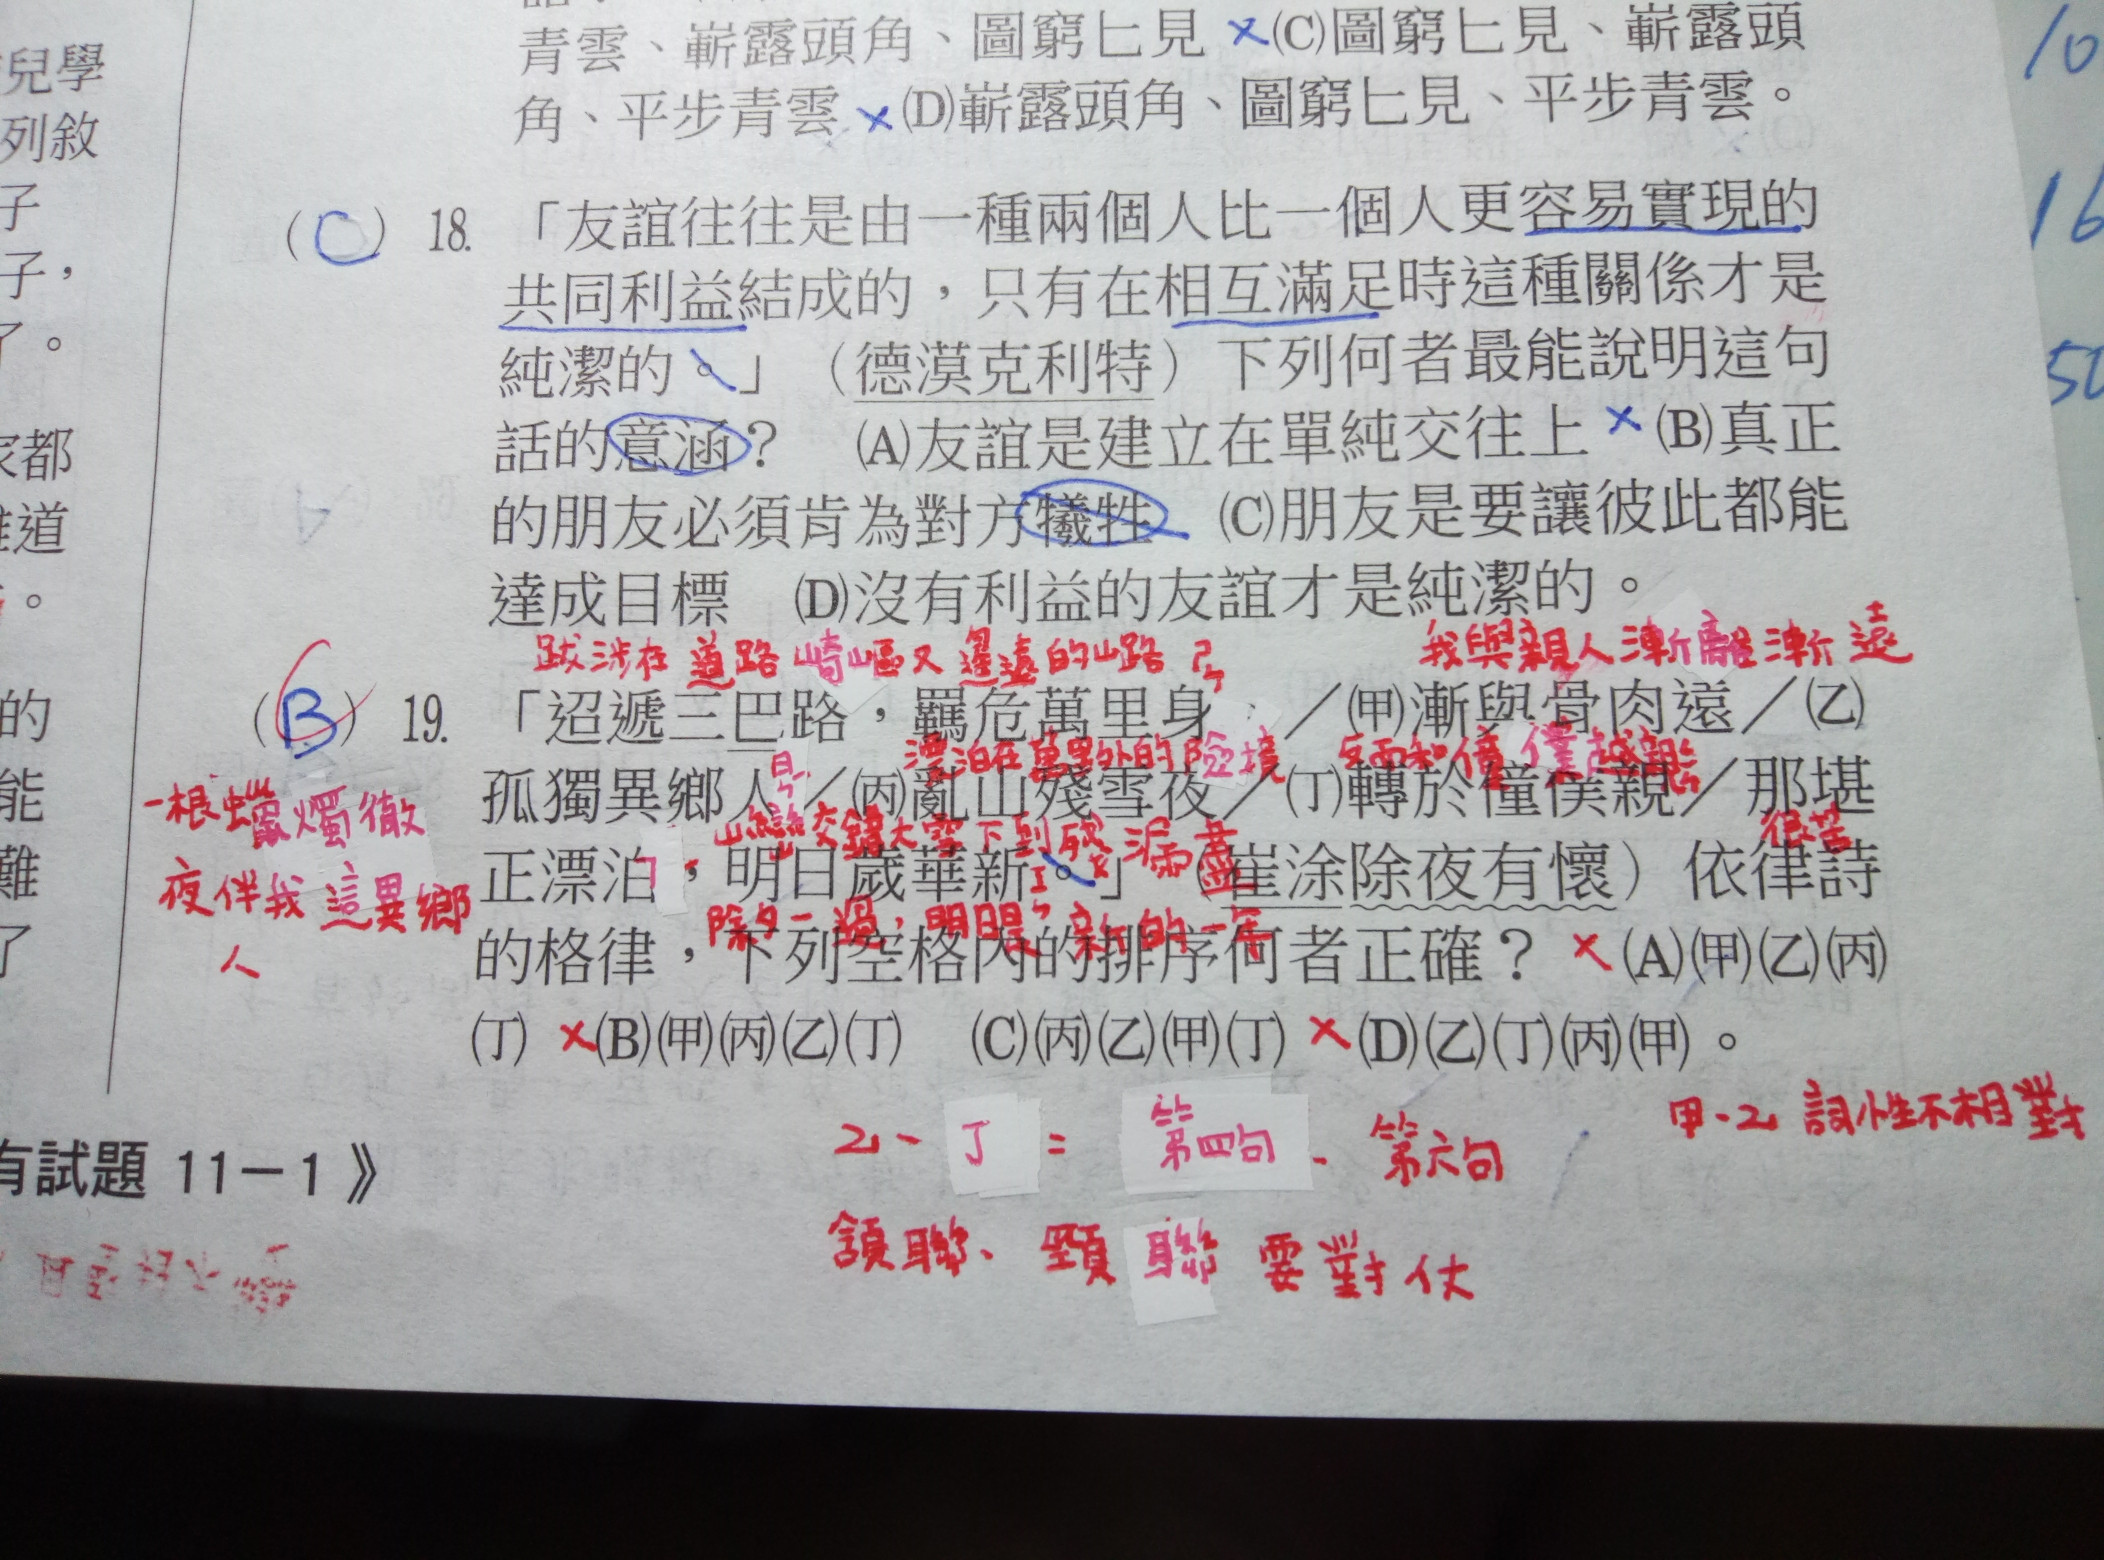 青雲、嶄露頭角、圖窮匕見 ×(C)圖窮匕見、嶄露頭
角、平步青雲 ×(D)嶄露頭角、圖窮匕見、平步青雲。
兒學
列敘
子
子，
了。
都
道
。
的
能
難
了
(C) 18. 「友誼往往是由一種兩個人比一個人更容易實現的
共同利益結成的，只有在相互滿足時這種關係才是
純潔的。」（德漠克利特）下列何者最能說明這句
話的意涵？ (A)友誼是建立在單純交往上 ×(B)真正
的朋友必須肯為對方犧牲 (C)朋友是要讓彼此都能
達成目標 (D)沒有利益的友誼才是純潔的。
跋涉在道路崎嶇又遙遠的山路 我與親人漸離漸遠
(B) 19. 「迢遞三巴路，羈危萬里身／(甲)漸與骨肉遠／(乙)
漂泊在萬里外的險境 反而和僮僕越親
孤獨異鄉人／(丙)亂山殘雪夜／(丁)轉於僮僕親／那堪
正漂泊，明日歲華新。」（崔涂除夜有懷）依律詩
除夕一過，明日是新的一年
的格律，下列空格內的排序何者正確？ ×(A)(甲)(乙)(丙)
(丁) ×(B)(甲)(丙)(乙)(丁) (C)(丙)(乙)(甲)(丁) ×(D)(乙)(丁)(丙)(甲)。
一根蠟燭徹
夜伴我這異鄉
人
甲、乙 詞性不相對
乙、丁 = 第四句、第六句
頷聯、頸聯要對仗
有試題 11－1 》
10
16
50